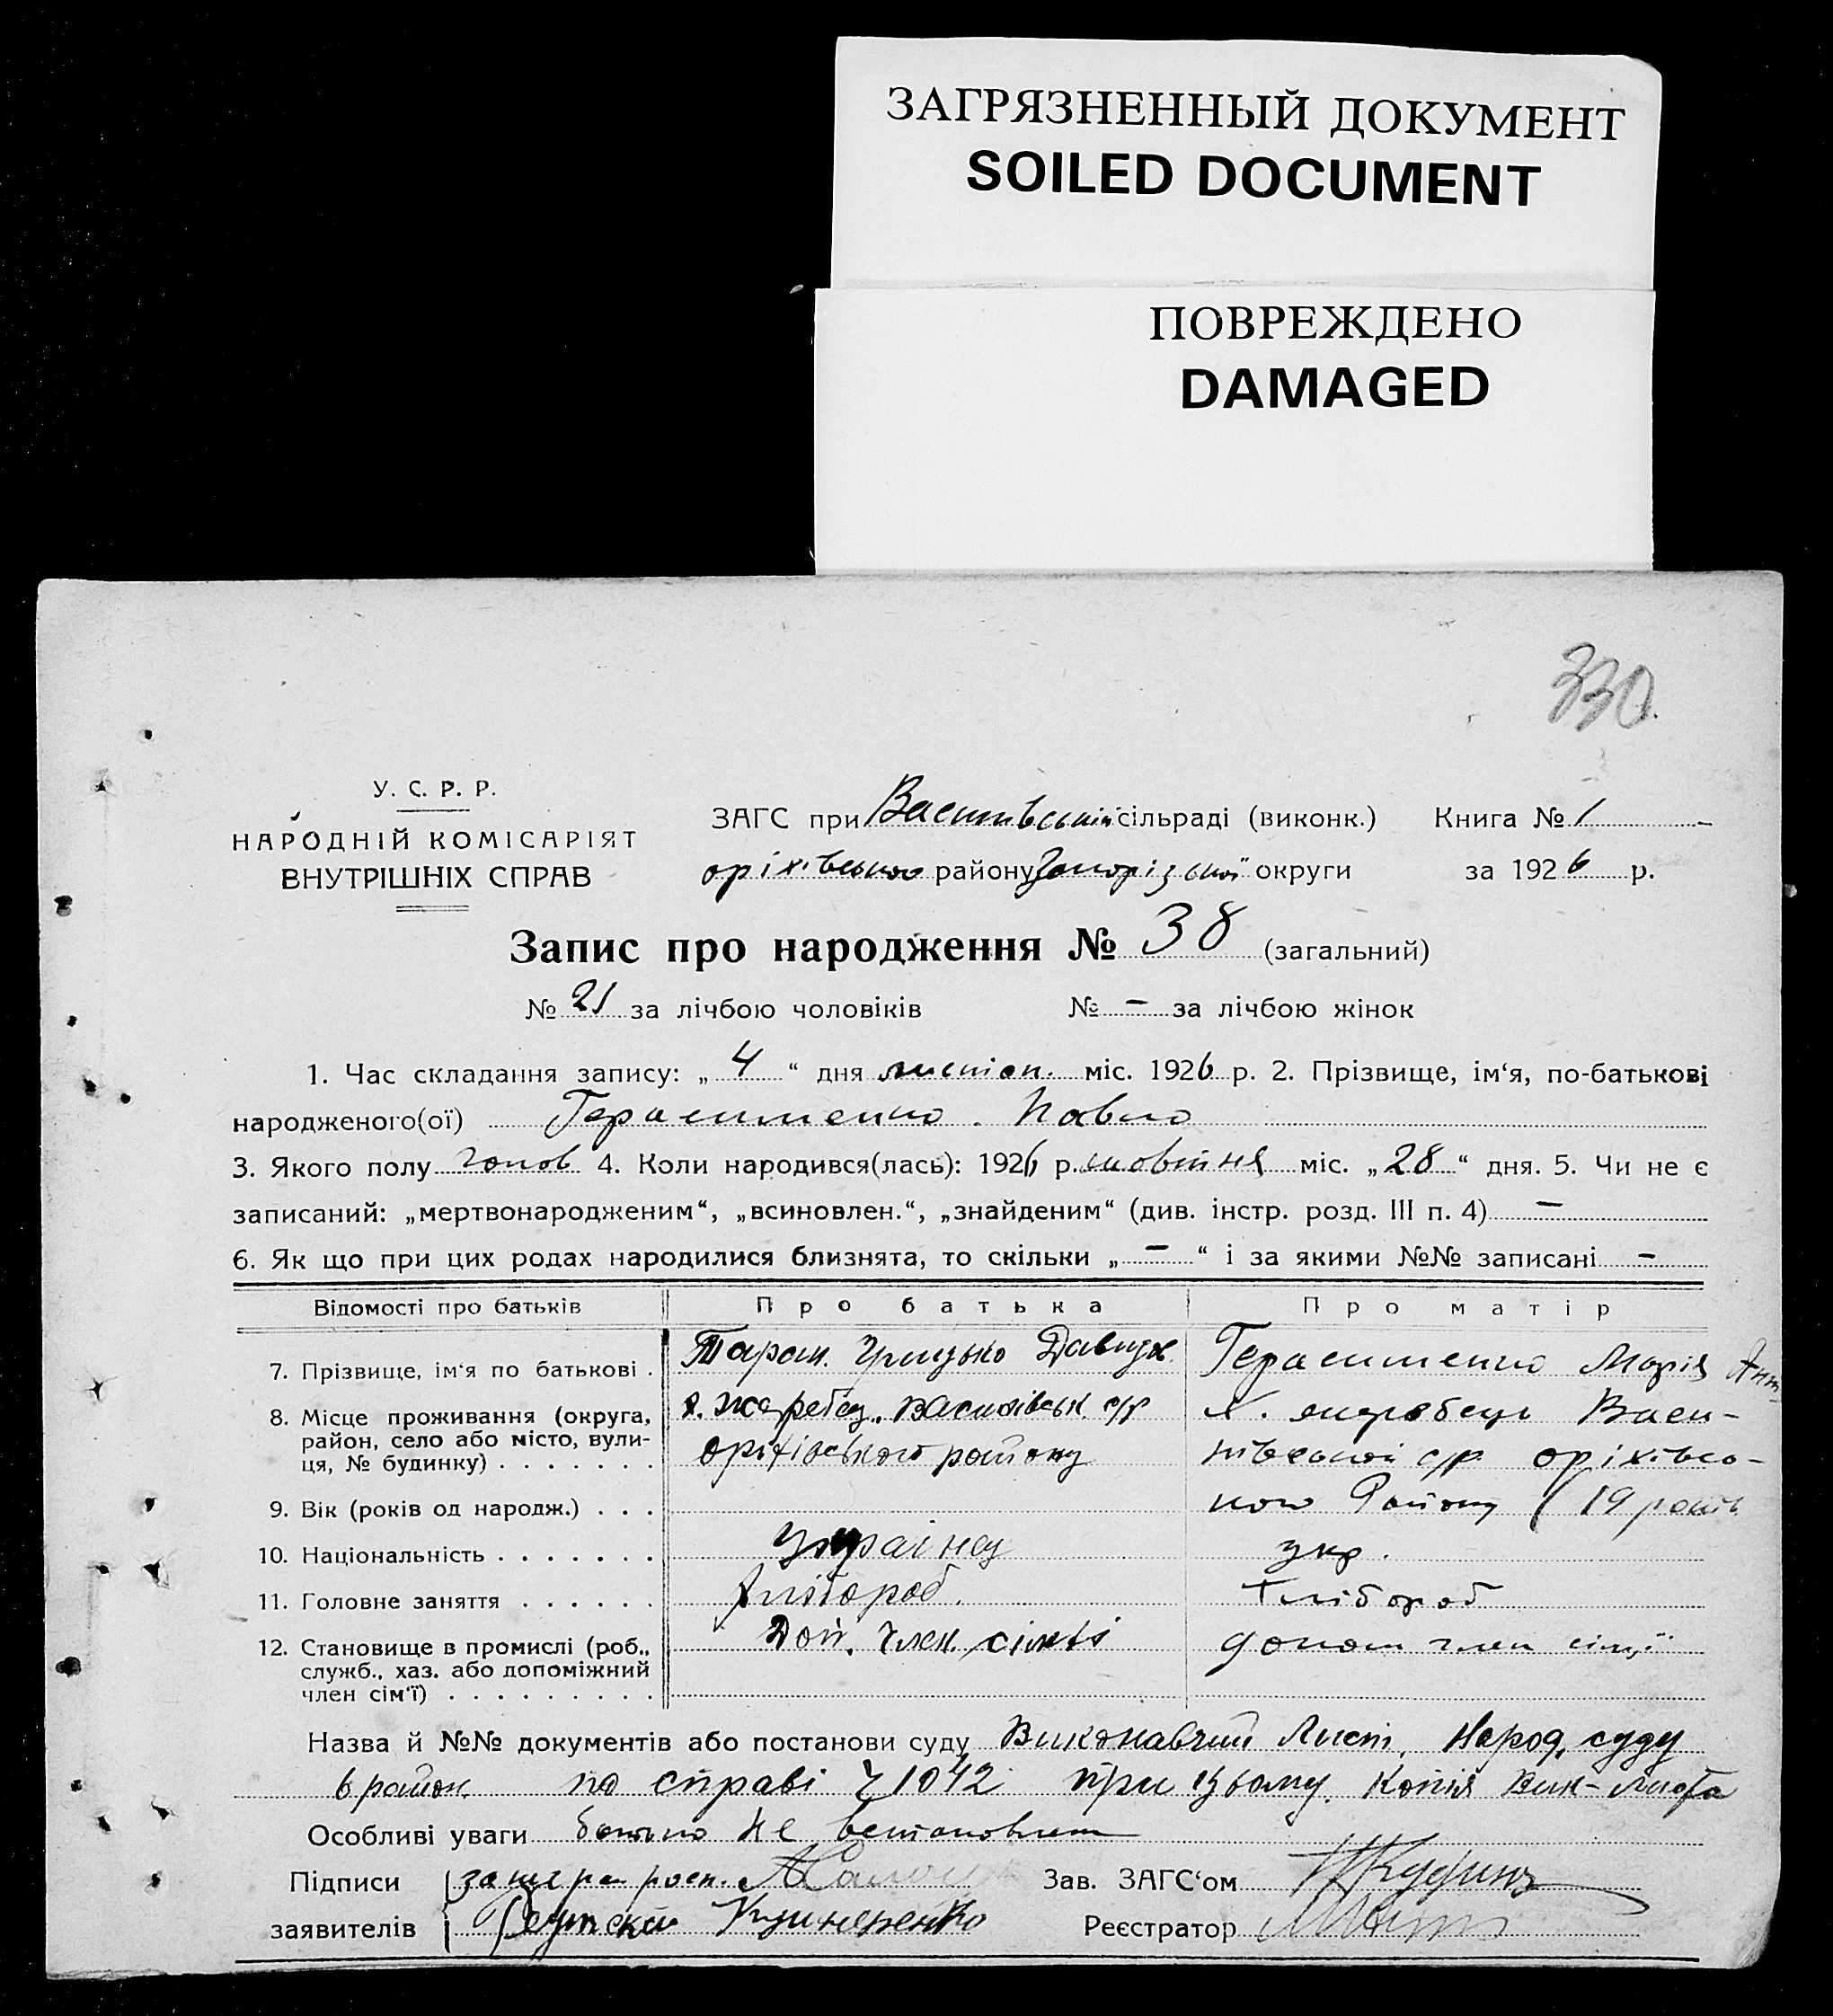 ЗАГРЯЗНЕННЫЙ ДОКУМЕНТ
SOILED DOCUMENT
ПОВРЕЖДЕНО
DAMAGED
330.
У. С. Р. Р.
НАРОДНІЙ КОМІСАРІЯТ
ВНУТРІШНІХ СПРАВ
ЗАГС при сільраді (виконк.) Книга № 1
оріхівського району Запорізької округи за 1926 р.
Запис про народження № 38 (загальний)
№ 21 за лічбою чоловіків № – за лічбою жінок
1. Час складання запису: „ 4 “ дня листоп. міс. 1926 р. 2. Прізвище, ім‘я, по-батькові
народженого(ої) Герасименко Павло
3. Якого полу чолов 4. Коли народився(лась): 1926 р. жовтня міс. „ 28 “ дня. 5. Чи не є
записаний: „мертвонародженим“, „всиновлен.“, „знайденим“ (див. інстр. розд. III п. 4) –
6. Як що при цих родах народилися близнята, то скільки „ – “ і за якими №№ записані –
Відомості про батьків Про батька Про матір
7. Прізвище, ім‘я по батькові . Таран. Грицько Давидов. Герасименко Марія Ант
8. Місце проживання (округа, х. жеребец. сс/р х. жеребець Васи-
район, село або місто, вули- оріхівського району нівської с/р. оріхівсь-
ця, № будинку) . . . . . . . кого Району
9. Вік (років од народж.) . . . 19 років
10. Національність . . . . . . . українец укр.
11. Головне заняття . . . . . . хлібороб. хлібороб
12. Становище в промислі (роб., Доп. член. сімьі допом член сімї
служб., хаз. або допоміжний
член сім‘ї) . . . . . . . . .
Назва й №№ документів або постанови суду Виконавчий Лист. Народ. суду
6 район. по справі 1042 при цьому. Копія Вик-Листа
Особливі уваги батько не встановлен
Підписи Зав. ЗАГС‘ом
заявителів Реєстратор